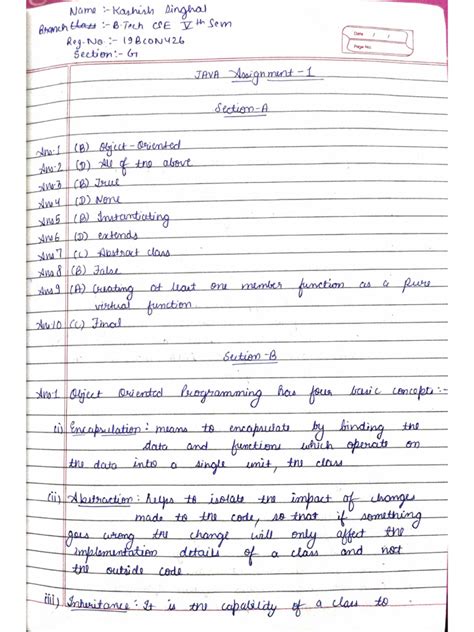 Name :- Kashish Singhal
Branch & Class :- B.Tech CSE Vth Sem
Reg. No :- 19BCON426
Section :- G
Date / /
Page No.
JAVA Assignment - 1
Section - A
Ans:1 (B) Object - Oriented
Ans:2 (D) All of the above
Ans:3 (B) True
Ans 4 (D) None
Ans 5 (B) Instantiating
Ans 6 (D) extends
Ans 7 (C) Abstract class
Ans 8 (B) False
Ans 9 (A) Creating at least one member function as a pure
virtual function.
Ans:10 (C) Final
Section - B
Ans:1 Object Oriented Programming has four basic concepts :-
(i) Encapsulation : means to encapsulate by binding the
data and functions which operate on
the data into a single unit, the class
(ii) Abstraction : helps to isolate the impact of changes
made to the code, so that if something
goes wrong the change will only affect the
implementation details of a class and not
the outside code.
(iii) Inheritance : It is the capability of a class to